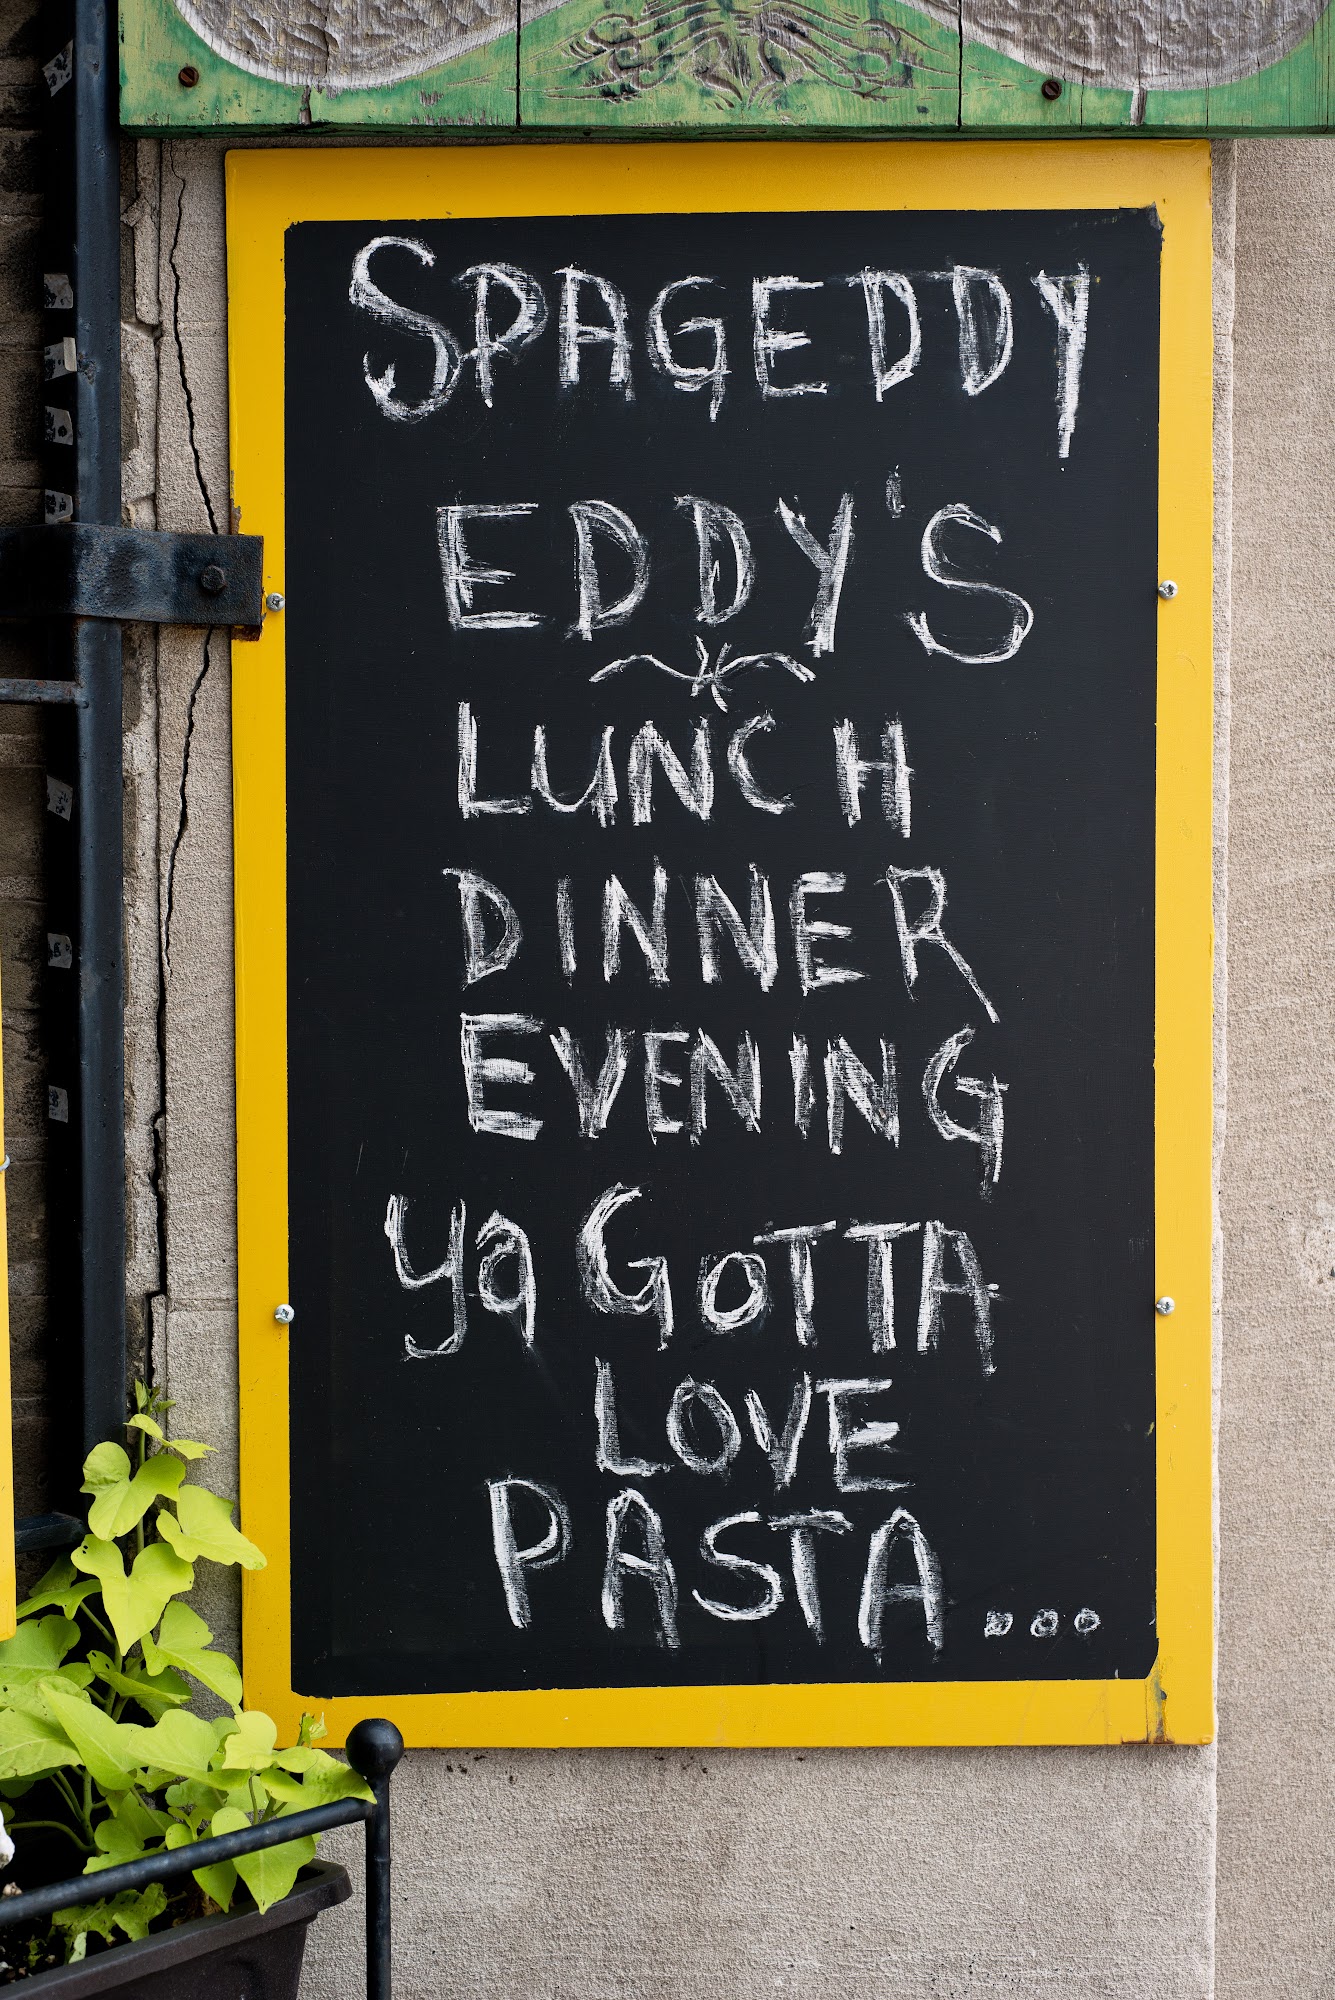 SPAGEDDY
EDDY'S
LUNCH
DINNER
EVENING
ya GOTTA
LOVE
PASTA...